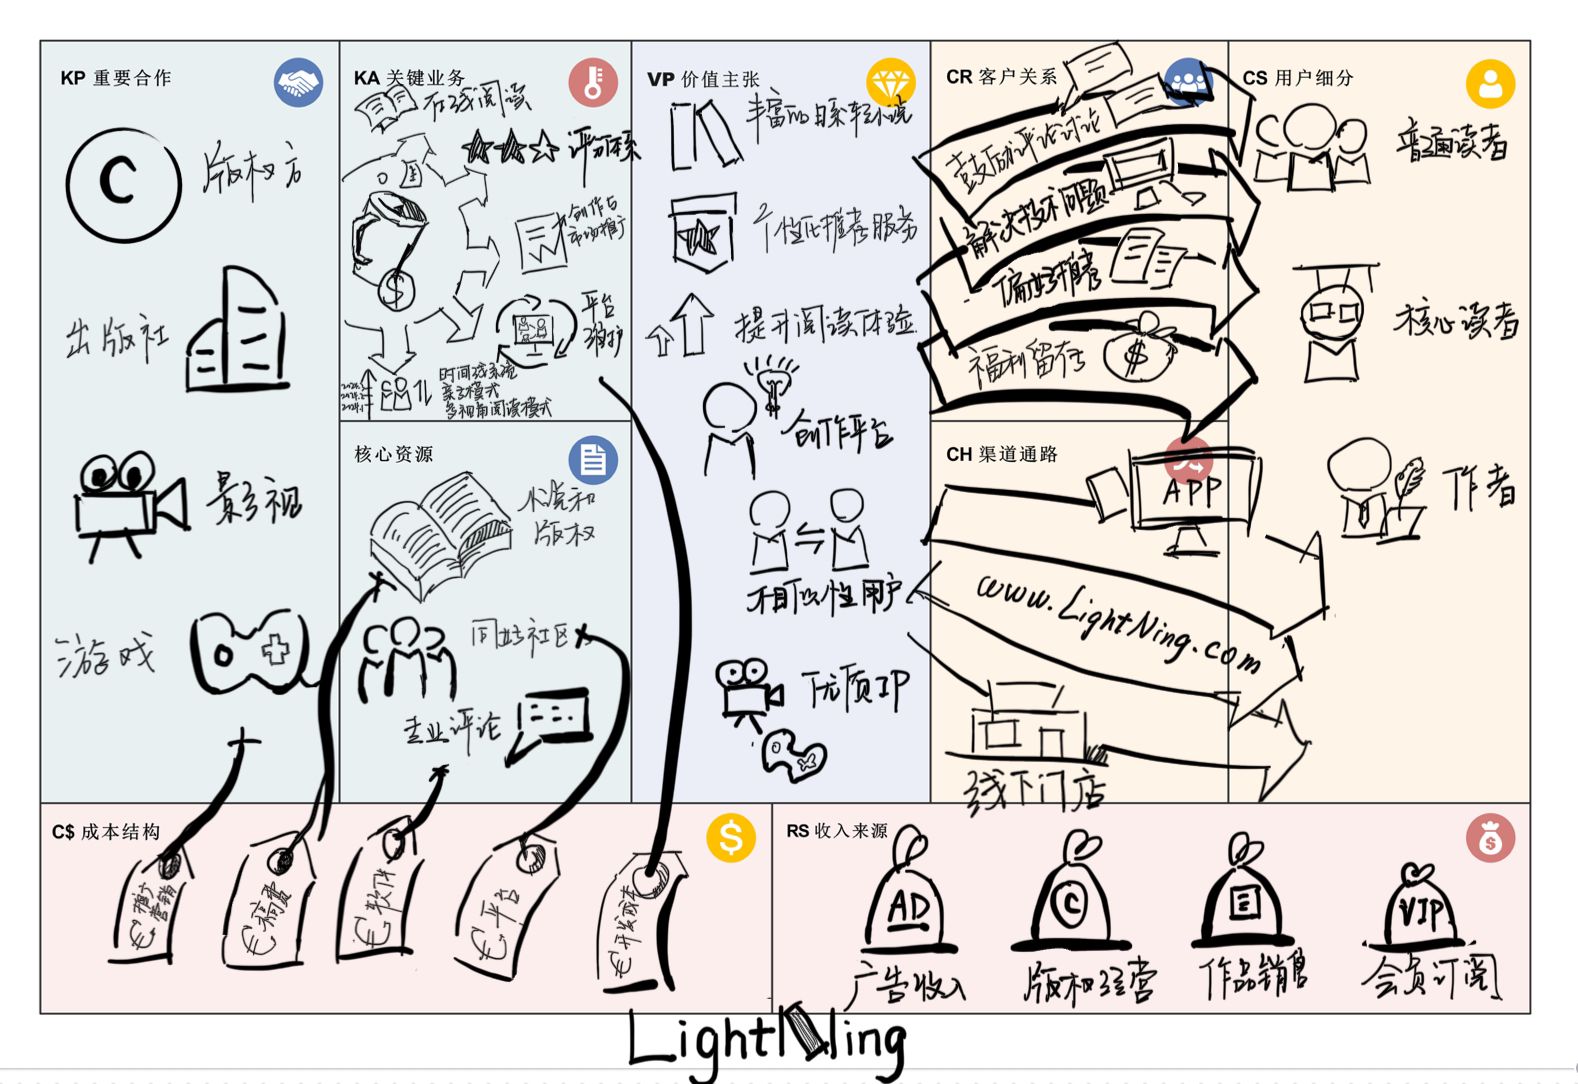 KP 重要合作
版权方
出版社
影视
游戏
KA 关键业务
在线阅读
评价体系
创作与
市场推广
平台
维护
时间线系统
亲主模式
多视角阅读模式
核心资源
小说和
版权
同好社区
专业评论
VP 价值主张
丰富的日系轻小说
个性化推荐服务
提升阅读体验
创作平台
相似性用户
优质IP
CR 客户关系
鼓励评论讨论
解决技术问题
偏好推荐
福利留存
CH 渠道通路
APP
www.LightNing.com
线下门店
CS 用户细分
普通读者
核心读者
作者
C$ 成本结构
€ 推广
营销
€ 稿费
€ 软件
€ 平台
€ 开发成本
RS 收入来源
AD
广告收入
C
版权经营
作品销售
VIP
会员订阅
LightNing